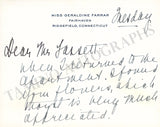 MISS GERALDINE FARRAR
FAIRHAVEN
RIDGEFIELD, CONNECTICUT
Tuesday
Dear Mr. Fassett
when I returned to the
apartment I found
your flowers, which
thought is very much
appreciated.